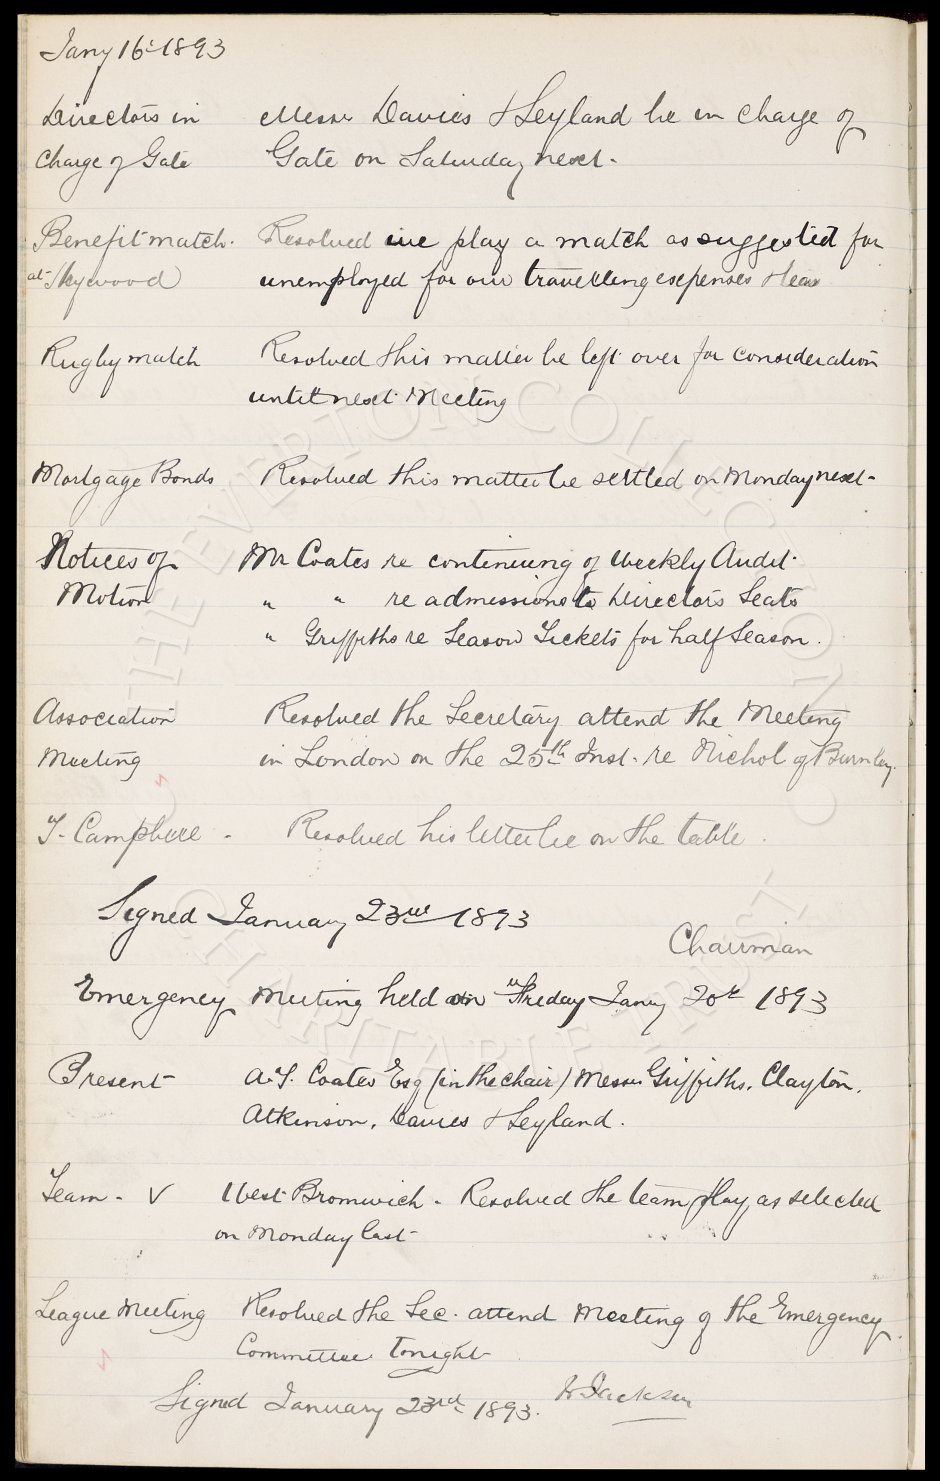 Jany 16th 1893
Directors in Messrs Davies & Leyland be in charge of
Charge of Gate Gate on Saturday next.
Benefit match. Resolved we play a match as suggested for
at Heywood unemployed for our travelling expenses & teas
Rugby match Resolved this matter be left over for consideration
until next Meeting
Mortgage Bonds Resolved this matter be settled on Monday next-
Notices of Mr Coates re continuing of Weekly Audit.
Motion " " re admissions to Directors Seats
" Griffiths re Season Tickets for half Season.
Association Resolved the Secretary attend the Meeting
Meeting in London on the 25th Inst. re Nichol of Burnley.
T. Campbell - Resolved his letter lie on the table.
Signed January 23rd 1893
Chairman
Emergency Meeting held on Friday Jany 20th 1893
Present A.T. Coates Esq (in the chair) Messrs Griffiths, Clayton,
Atkinson, Davies & Leyland.
Team - V West Bromwich - Resolved the team play as selected
on Monday last
League Meeting Resolved the Sec. attend Meeting of the Emergency
Committee tonight
Signed January 23rd 1893. Jackson
THE EVERTON COLLECTION
CHARITABLE TRUST